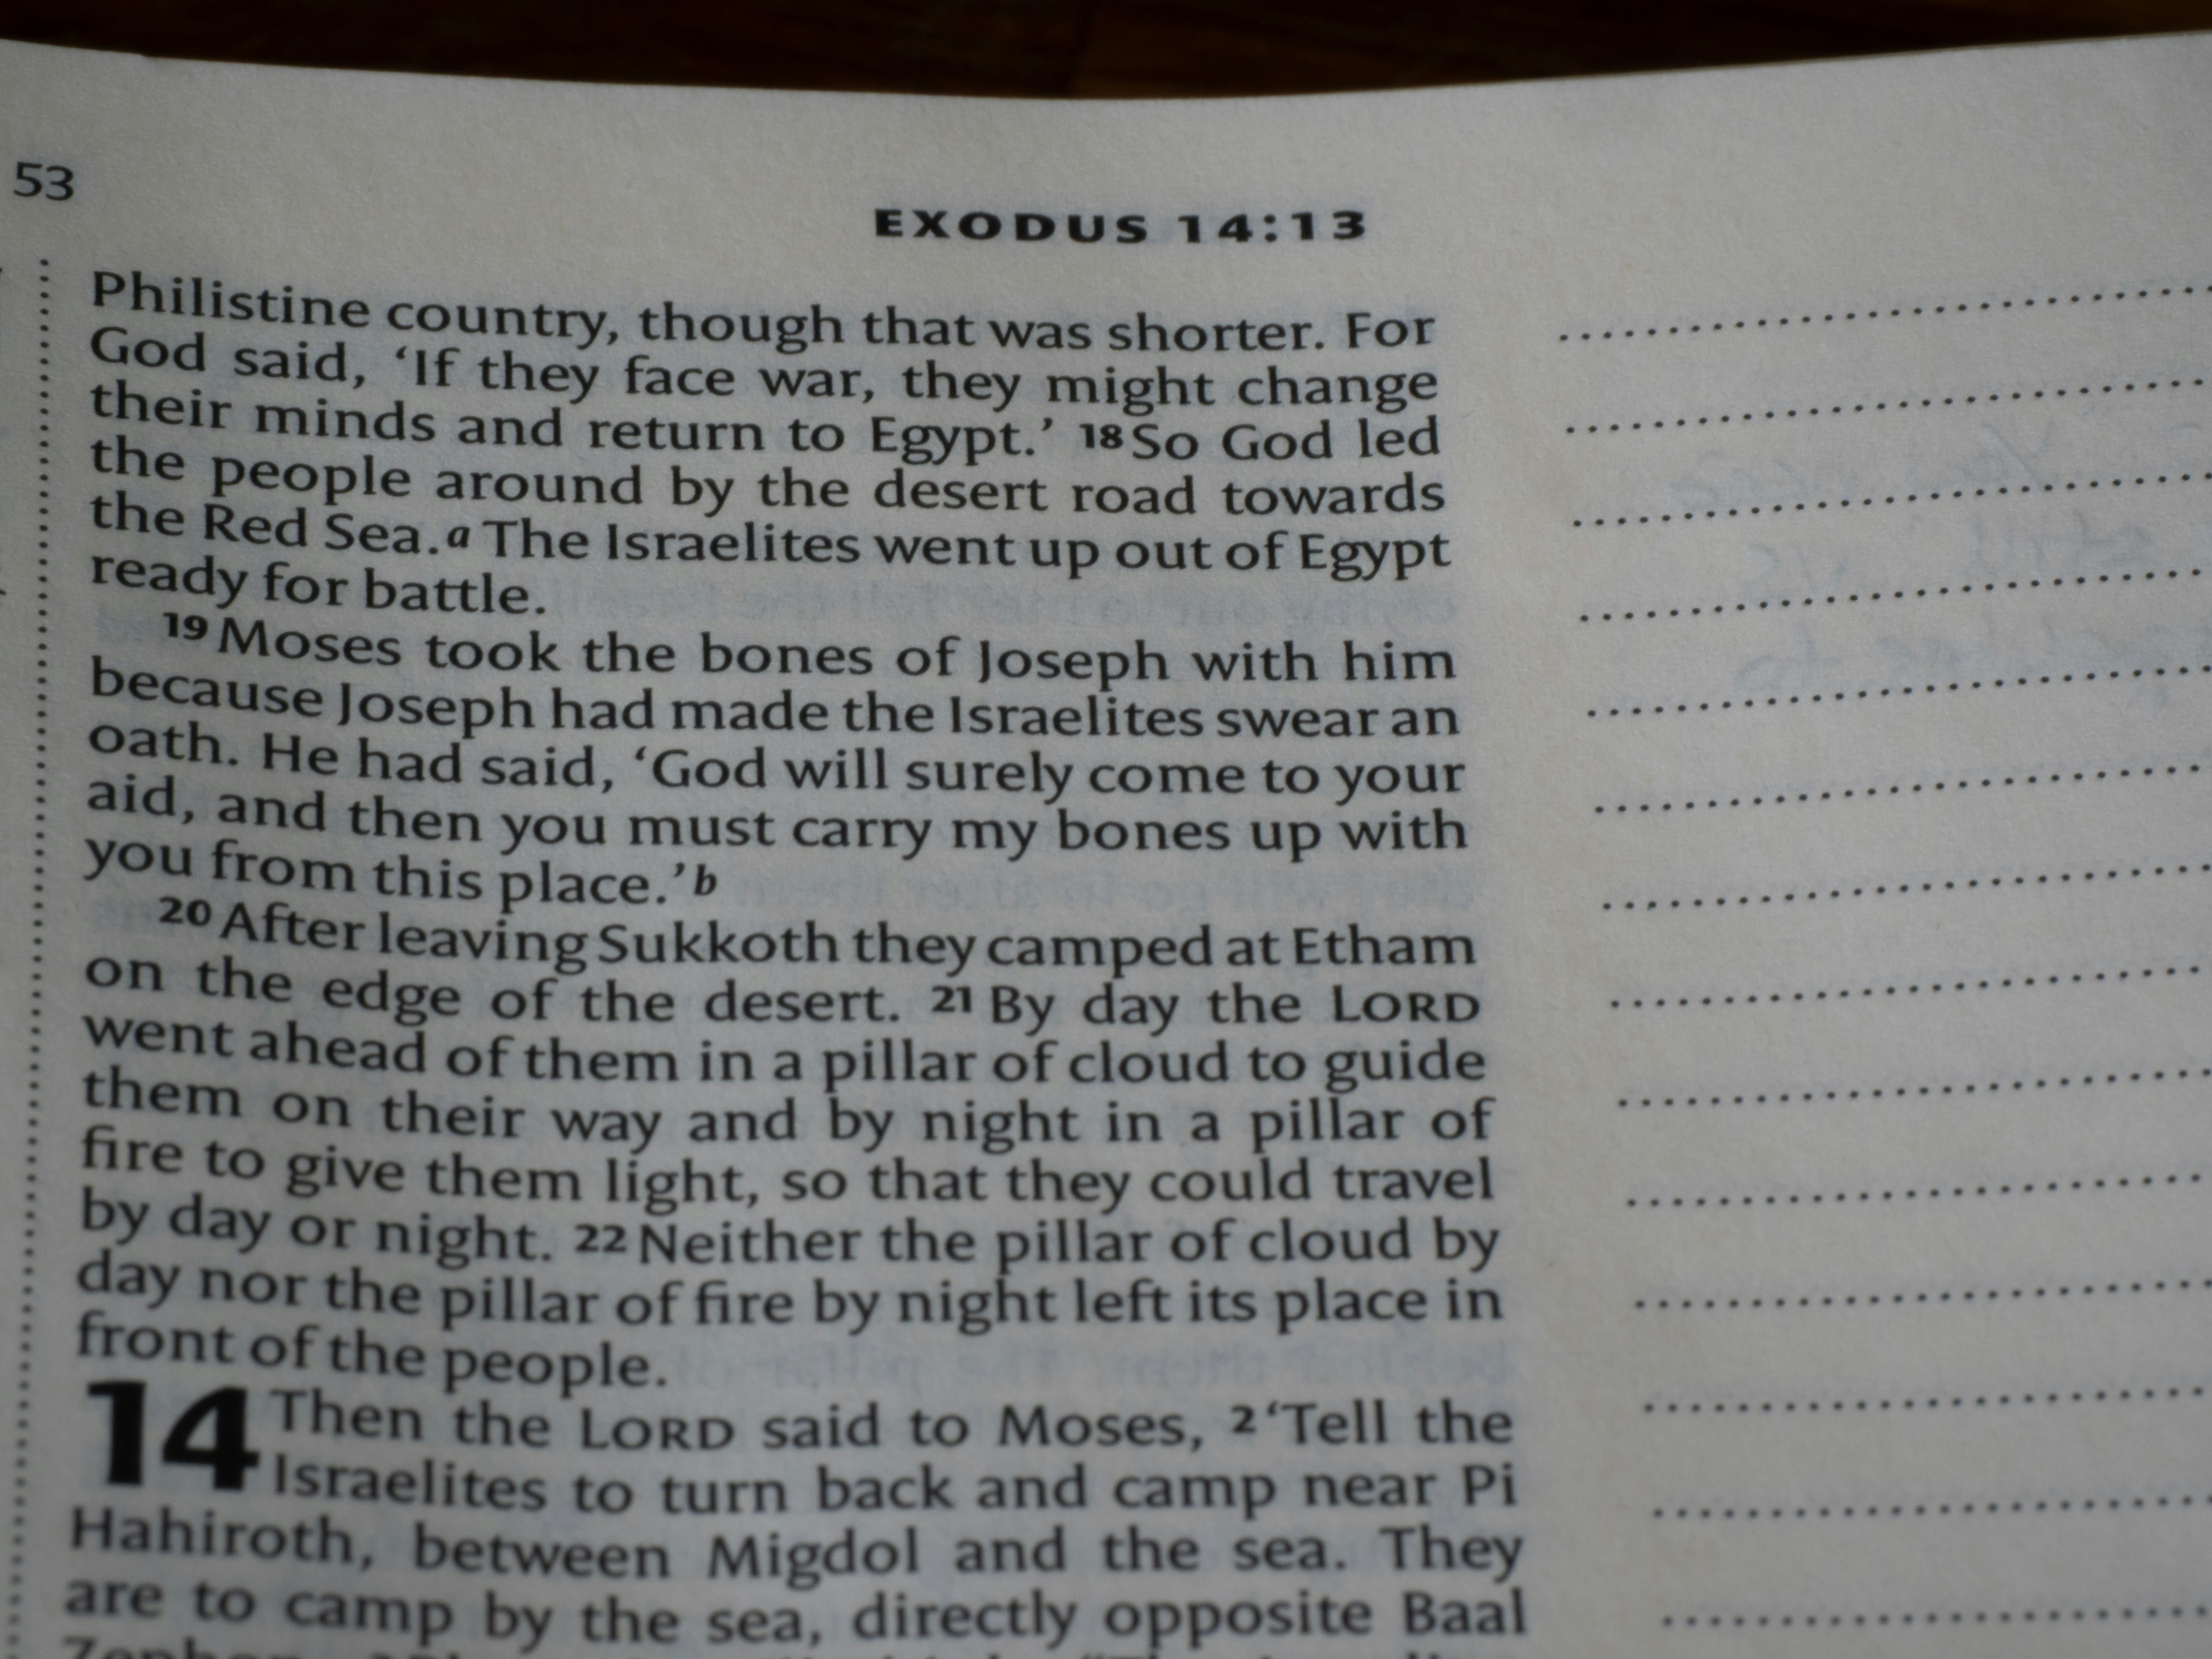 53
EXODUS 14:13
Philistine country, though that was shorter. For
God said, ‘If they face war, they might change
their minds and return to Egypt.’ 18 So God led
the people around by the desert road towards
the Red Sea.a The Israelites went up out of Egypt
ready for battle.
19 Moses took the bones of Joseph with him
because Joseph had made the Israelites swear an
oath. He had said, ‘God will surely come to your
aid, and then you must carry my bones up with
you from this place.’b
20 After leaving Sukkoth they camped at Etham
on the edge of the desert. 21 By day the LORD
went ahead of them in a pillar of cloud to guide
them on their way and by night in a pillar of
fire to give them light, so that they could travel
by day or night. 22 Neither the pillar of cloud by
day nor the pillar of fire by night left its place in
front of the people.
14 Then the LORD said to Moses, 2 ‘Tell the
Israelites to turn back and camp near Pi
Hahiroth, between Migdol and the sea. They
are to camp by the sea, directly opposite Baal